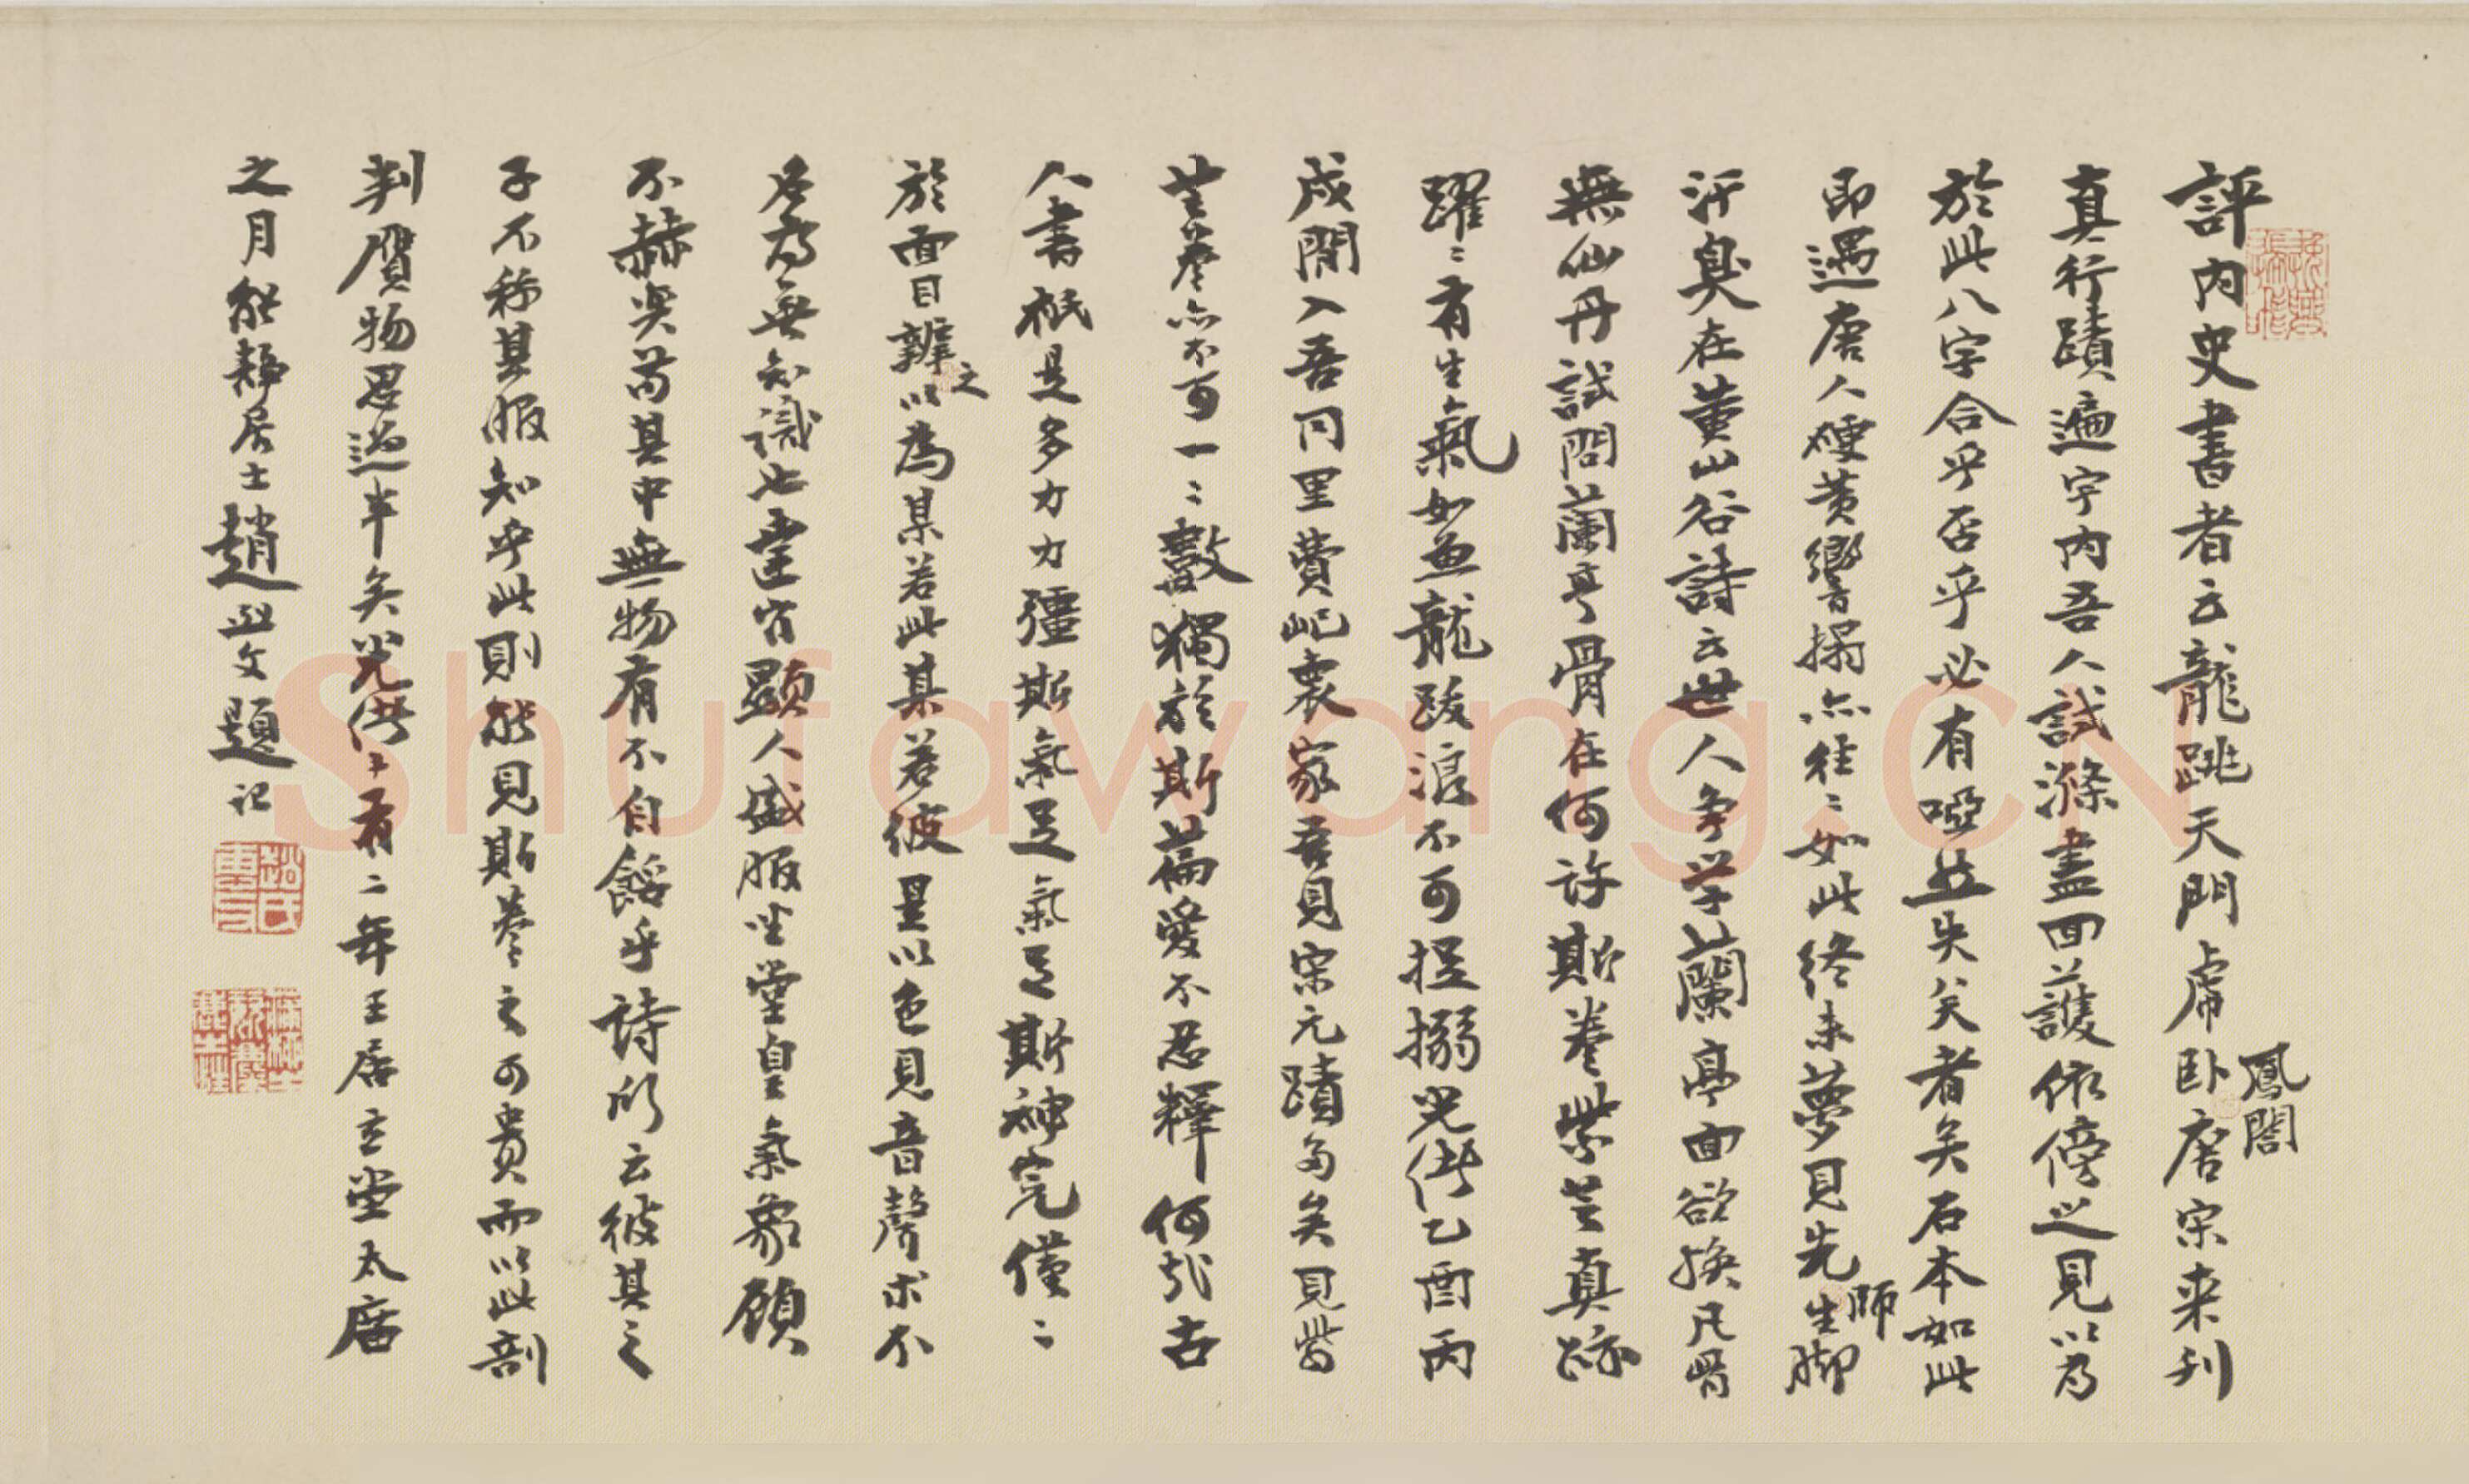 評內史書者云龍跳天門虎臥鳳閣唐宋来刋
真行蹟遍宇內吾人試滌盡回護依傍之見以為
於此八字合乎否乎必有啞然失笑者矣石本如此
即遇唐人硬黃響搨亦往〻如此終未夢見先師脚
汗臭在黃山谷詩云世人争学蘭亭面欲換凡骨
無仙丹試問蘭亭骨在何許斯卷紫芝真跡
躍〻有生氣如魚龍跋浪不可捉搦光緒乙酉丙
戌間入吾同里費屺褱家吾見宋元蹟多矣見紫
芝卷亦不可一〻數獨於斯篇愛不忍釋何哉古
人書祇是多力力彊斯氣足氣足斯神完僅〻
於面目辨之以為某若此某若彼是以色見音聲求不
名為無知識也達官顯人盛服坐堂皇氣象顧
不赫奕苟其中無物有不自餡乎詩所云彼其之
子不称其服知乎此則能見斯卷之可貴而以此剖
判贋物思過半矣光緒二十有二年王居玄堂太廟
之月能靜居士趙烈文題記
Shufawang.CN